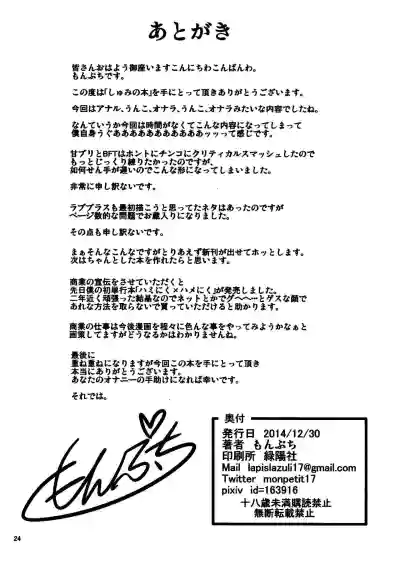 あとがき
皆さんおはよう御座いますこんにちわこんばんわ。
もんぷちです。
この度は「しゅみの本」を手にとって頂きありがとうございます。
今回はアナル、うんこ、オナラ、うんこ、オナラみたいな内容でしたね。
なんていうか今回は時間がなくてこんな内容になってしまって
僕自身うぐああああああああああァッッって感じです。
甘ブリとBFTはホントにチンコにクリティカルスマッシュしたので
もっとじっくり練りたかったのですが、
如何せん手が遅いのでこんな形になってしまいました。
非常に申し訳ないです。
ラブプラスも最初描こうと思ってたネタはあったのですが
ページ数的な問題でお蔵入りになりました。
その点も申し訳ないです。
まぁそんなこんなですがとりあえず新刊が出せてホッとします。
次はちゃんとした本を作れたらと思います。
商業の宣伝をさせていただくと
先日僕の初単行本「ハミにく×ハメにく」が発売しました。
二年近く頑張った結晶なのでネットとかでグヘヘーとゲスな顔で
あれな方法を取らないで買っていただけると助かります。
商業の仕事は今後漫画を程々に色んな事をやってみようかなぁと
画策してますがどうなるかはわかりませんね。
最後に
重ね重ねになりますが今回この本を手にとって頂き
本当にありがとうございます。
あなたのオナニーの手助けになれば幸いです。
それでは。
もんぷち
奥付
発行日 2014/12/30
著者 もんぷち
印刷所 緑陽社
Mail lapislazuli17@gmail.com
Twitter monpetit17
pixiv id=163916
十八歳未満購読禁止
無断転載禁止
24